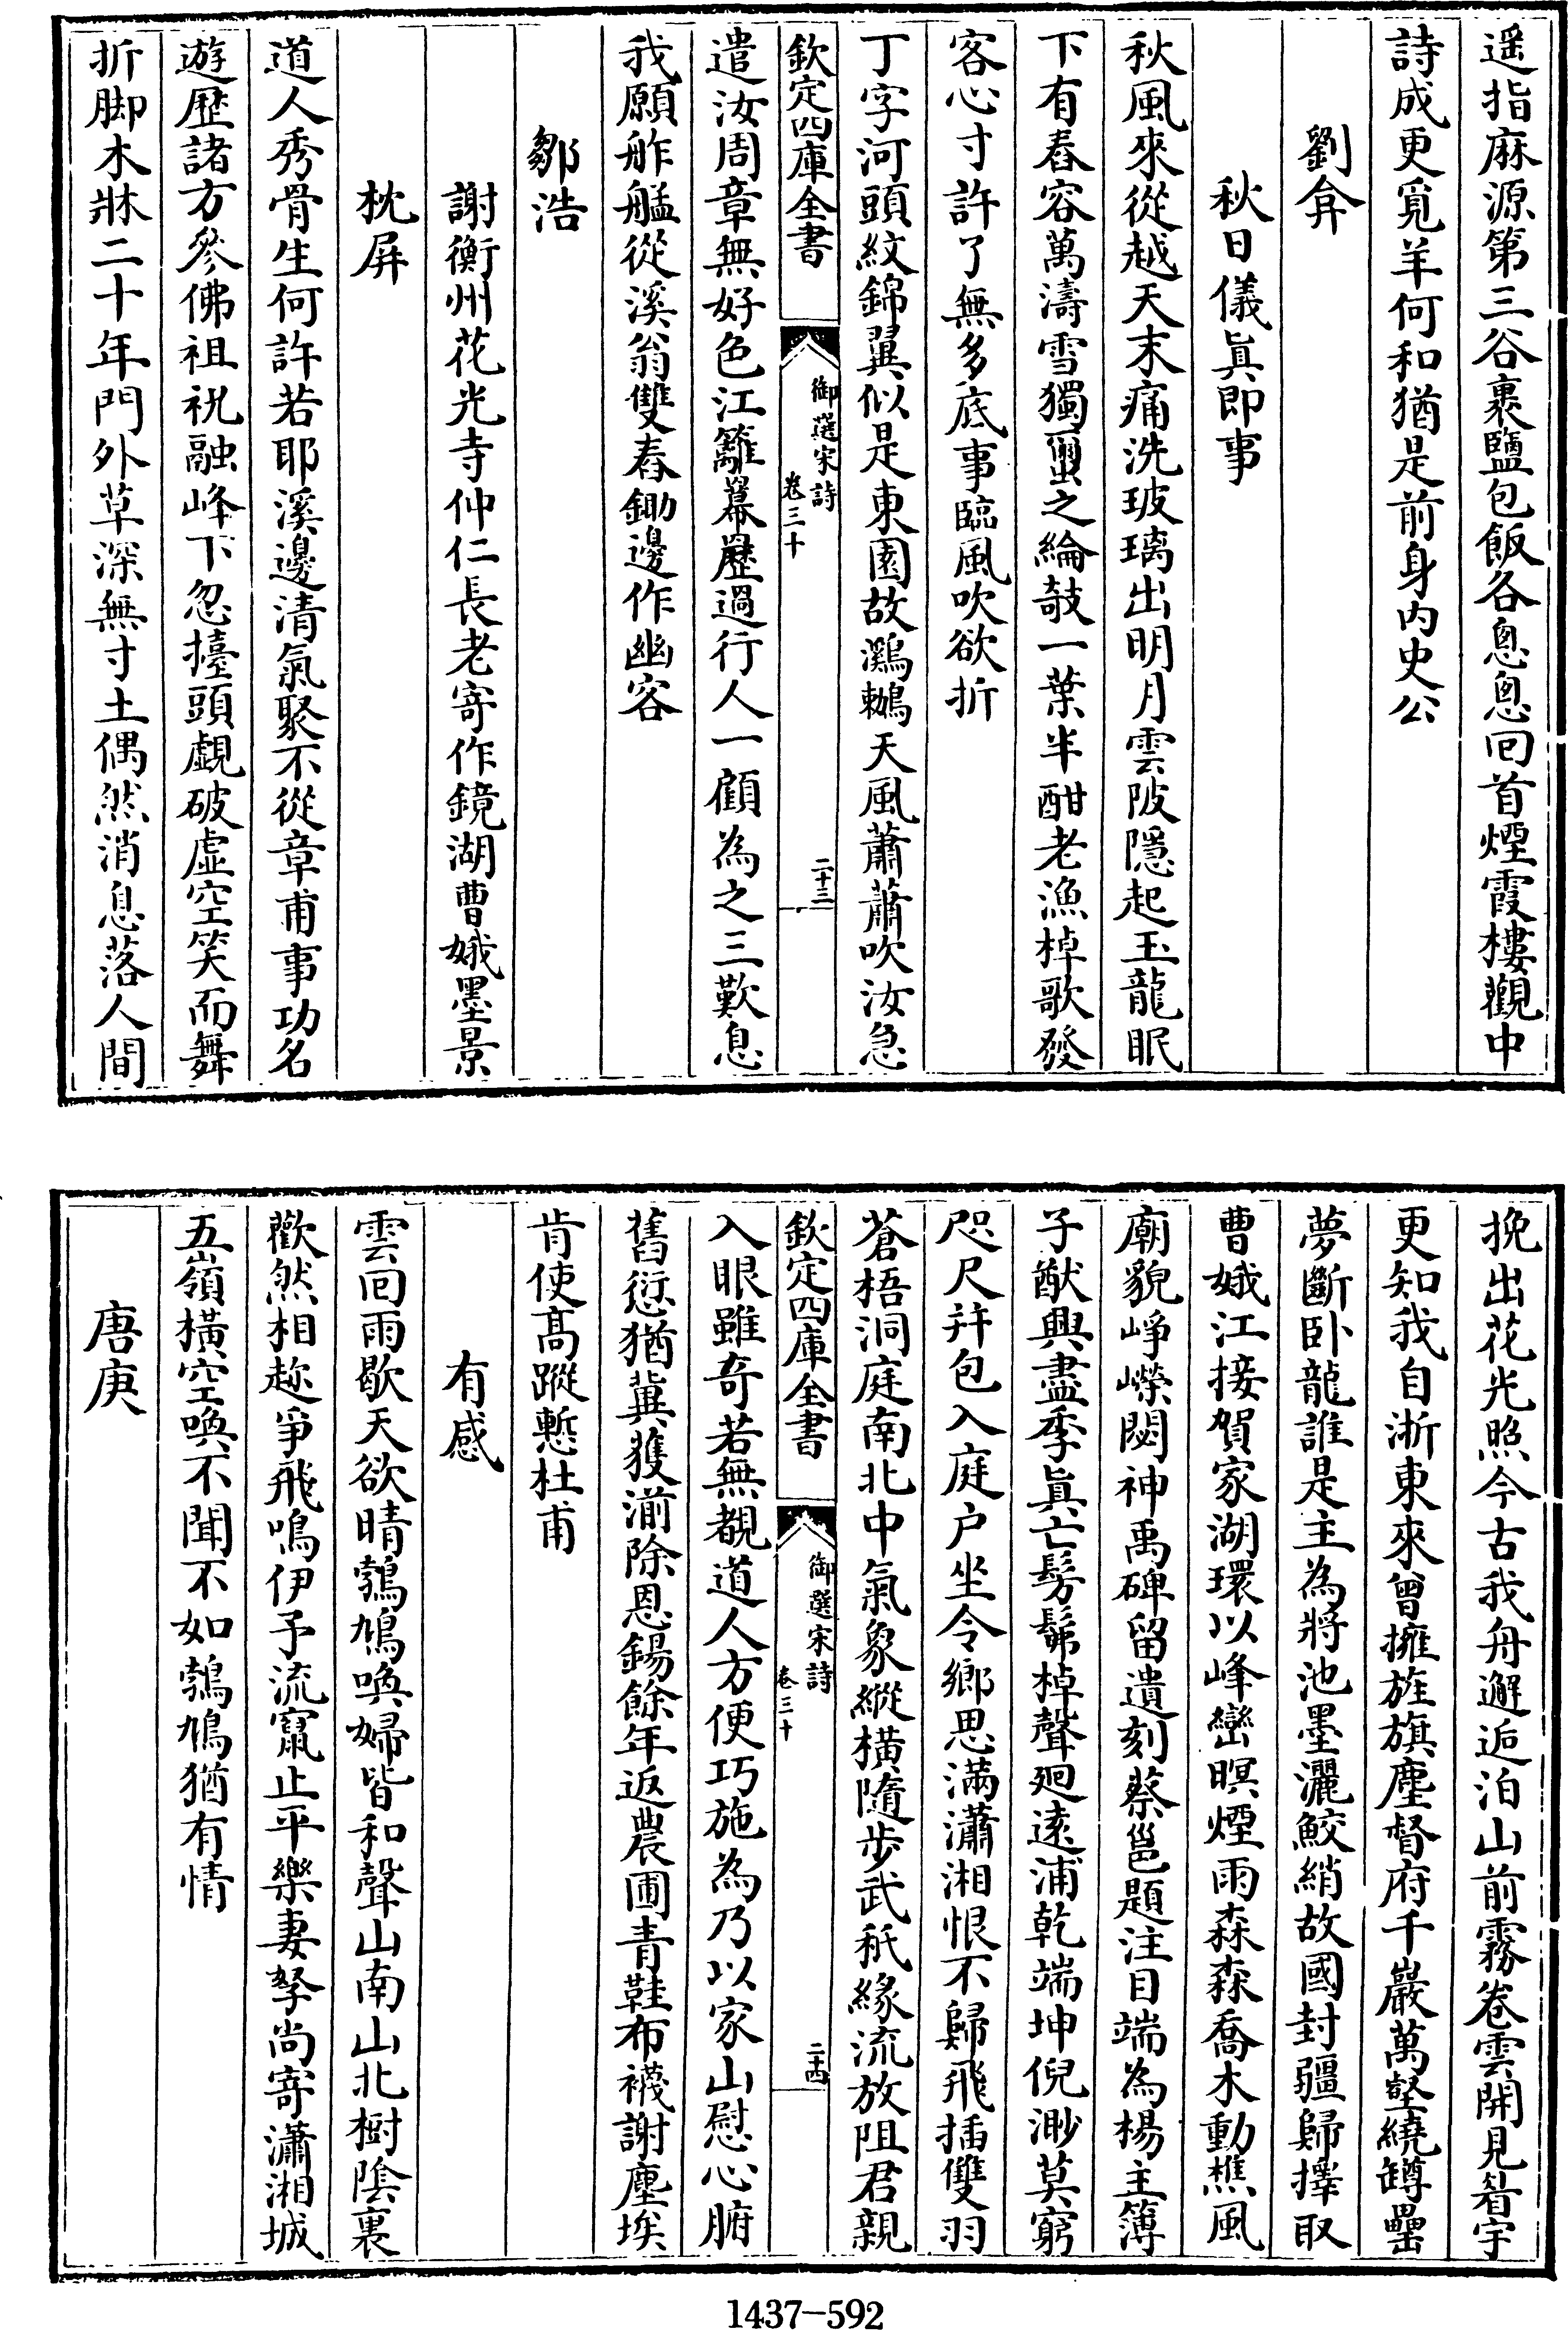 遥指麻源第三谷裹鹽包飯各悤悤回首煙霞樓觀中
詩成更覓羊何和猶是前身内史公
劉弇
秋日儀眞即事
秋風來從越天末痛洗玻璃出明月雲陂隱起玉龍眠
下有舂容萬濤雪獨蠒之綸攲一葉半酣老漁棹歌發
客心寸許了無多底事臨風吹欲折
丁字河頭紋錦翼似是東園故鸂鶒天風蕭蕭吹汝急
欽定四庫全書
御選宋詩
卷三十
二十三
遣汝周章無好色江籬幕歷過行人一顧為之三歎息
我願舴艋從溪翁雙舂鋤邊作幽客
鄒浩
謝衡州花光寺仲仁長老寄作鏡湖曹娥墨景
枕屏
道人秀骨生何許若耶溪邊清氣聚不從章甫事功名
遊歷諸方參佛祖祝融峰下忽擡頭覷破虛空笑而舞
折脚木牀二十年門外草深無寸土偶然消息落人間
挽出花光照今古我舟邂逅泊山前霧卷雲開見眉宇
更知我自浙東來曾擁旌旗塵督府千巖萬壑繞罇罍
夢斷卧龍誰是主為將池墨灑鮫綃故國封疆歸擇取
曹娥江接賀家湖環以峰巒暝煙雨森森喬木動樵風
廟貌崢嶸閟神禹碑留遺刻蔡邕題注目端為楊主簿
子猷興盡季眞亡髣髴棹聲廻遠浦乾端坤倪渺莫窮
咫尺并包入庭户坐令鄉思滿瀟湘恨不歸飛插雙羽
蒼梧洞庭南北中氣象縱橫隨步武秖緣流放阻君親
欽定四庫全書
御選宋詩
卷三十
二十四
入眼雖奇若無覩道人方便巧施為乃以家山慰心腑
舊愆猶冀獲湔除恩錫餘年返農圃青鞋布襪謝塵埃
肯使髙蹤慙杜甫
有感
雲回雨歇天欲晴鵓鳩喚婦皆和聲山南山北樹陰裏
歡然相趂爭飛鳴伊予流竄止平樂妻孥尚寄瀟湘城
五嶺橫空喚不聞不如鵓鳩猶有情
唐庚
1437-592